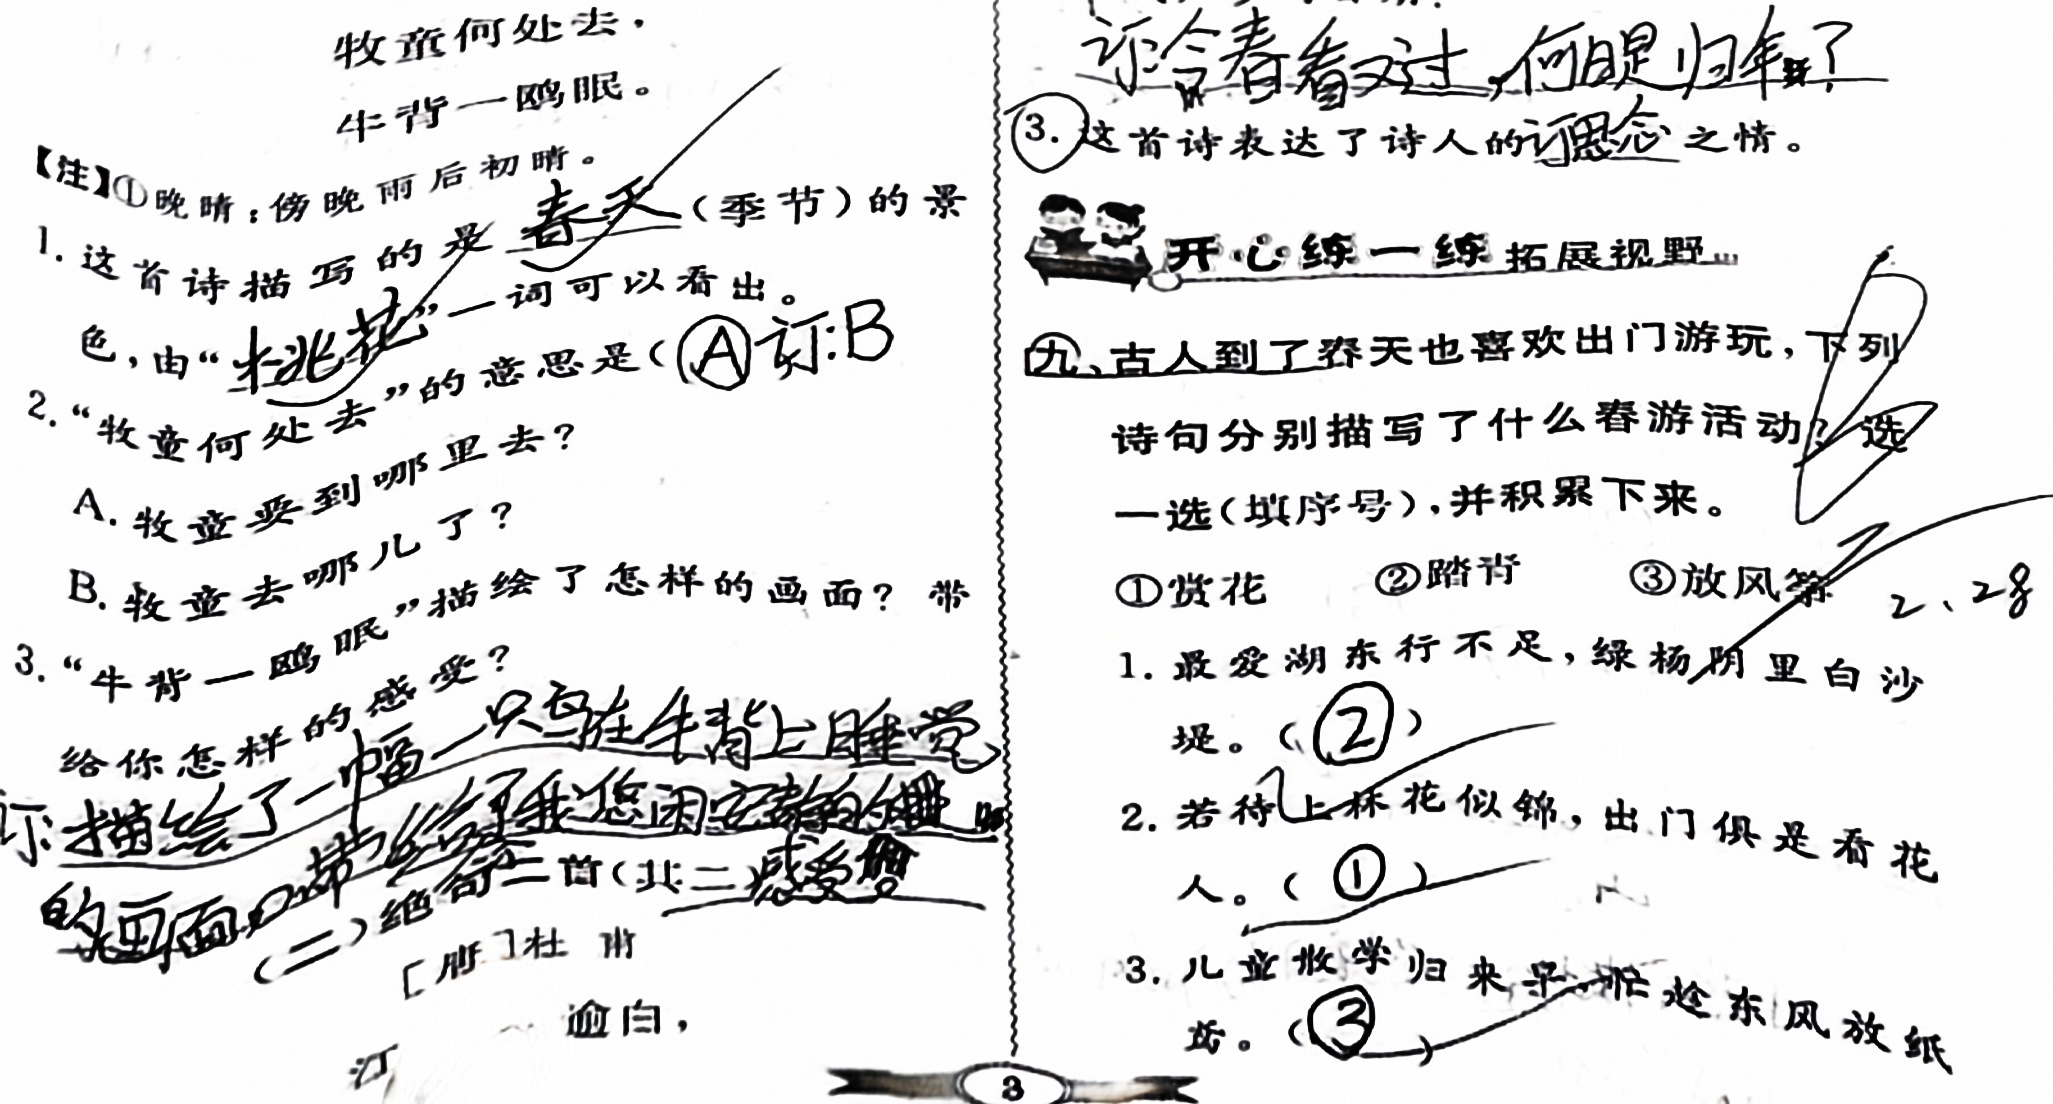 牧童何处去，
牛背一鸥眠。
【注】①晚晴：傍晚雨后初晴。
1. 这首诗描写的是 春天 （季节）的景
色，由“桃花”一词可以看出。
2. “牧童何处去”的意思是（ A 订：B
A. 牧童要到哪里去？
B. 牧童去哪儿了？
3. “牛背一鸥眠”描绘了怎样的画面？带
给你怎样的感受？
订：描绘了一幅一只鸟在牛背上睡觉
的画面，带给了我悠闲安静的
感受
（二）绝句二首（其二）
杜甫
逾白，
江
订：今春看又过，何日是归年？
3. 这首诗表达了诗人的订思念之情。
开心练一练 拓展视野
九、古人到了春天也喜欢出门游玩，下列
诗句分别描写了什么春游活动？选
一选（填序号），并积累下来。
①赏花 ②踏青 ③放风筝
2、28
1. 最爱湖东行不足，绿杨阴里白沙
堤。（ ② ）
2. 若待上林花似锦，出门俱是看花
人。（ ① ）
3. 儿童散学归来早，忙趁东风放纸
鸢。（ ③ ）
3